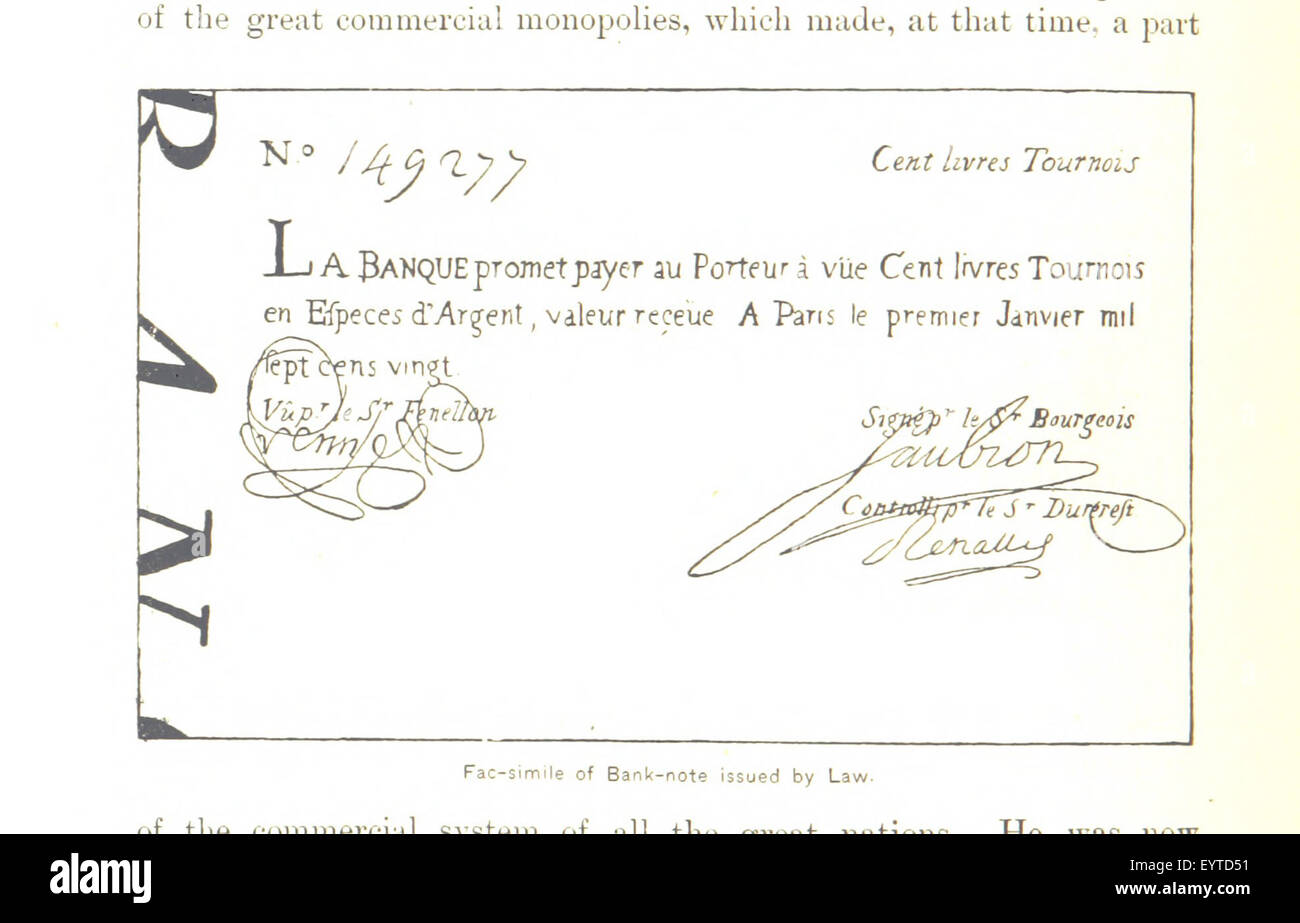 of the great commercial monopolies, which made, at that time, a part
N.º 149277
Cent livres Tournois
LA BANQUE promet payer au Porteur à vüe Cent livres Tournois
en Eſpeces d'Argent, valeur reçeüe A Paris le premier Janvier mil
ſept cens vingt.
Vûp.r le Sr Fenellon
Signép.r le Sr Bourgeois
Controllép.r le Sr Durevest
BANQ
Fac-simile of Bank-note issued by Law.
of the commercial system of all the great nations. He was now
a
alamy stock photo
alamy
Image ID: EYTD51
www.alamy.com